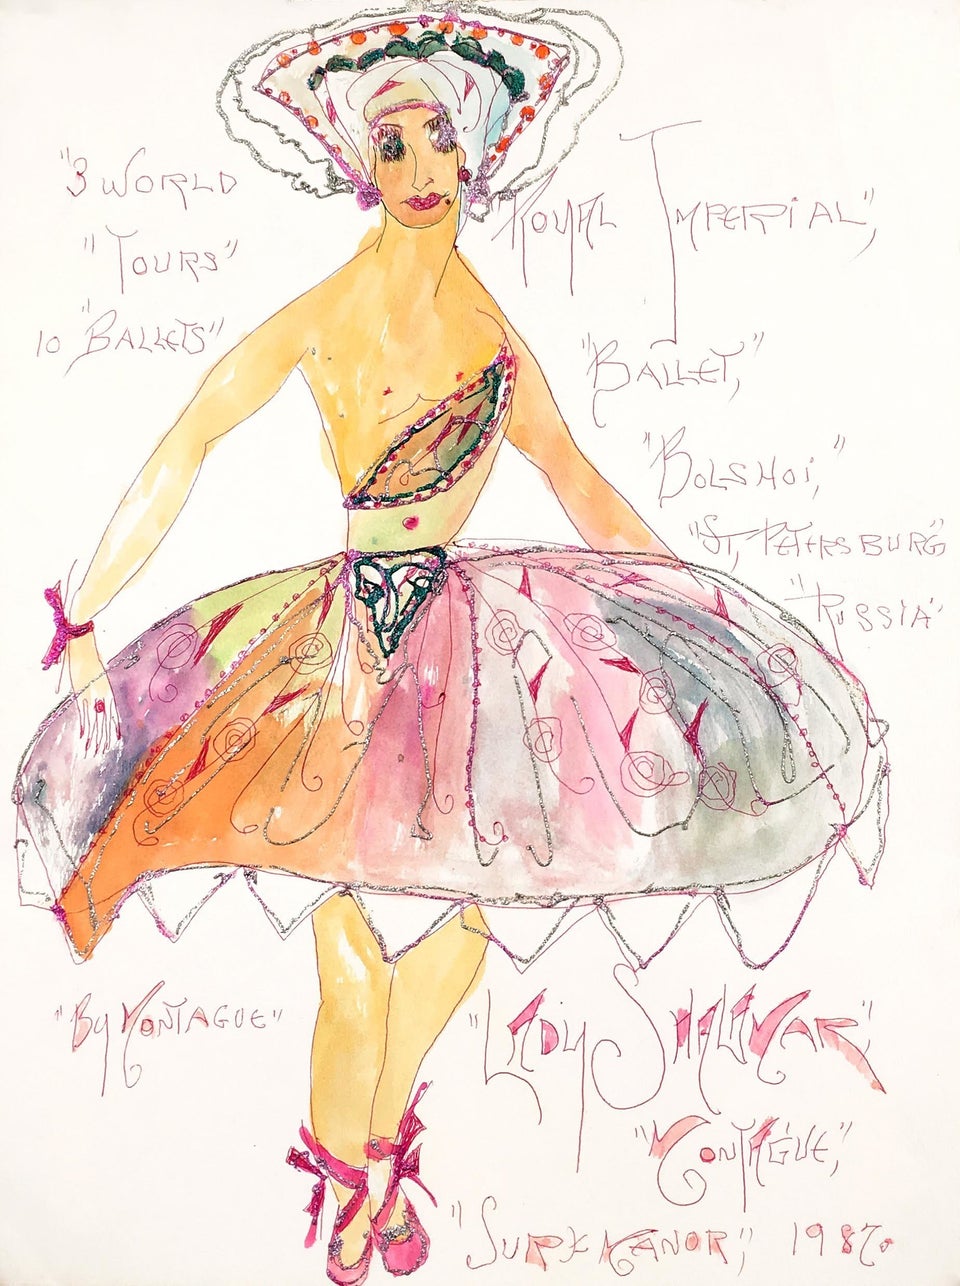 "3 WORLD
"TOURS"
10 "BALLETS"
"ROYAL IMPERIAL",
"BALLET,"
"BOLSHOI,"
"ST, PETERSBURG"
"RUSSIA"
"By MONTAGUE"
"LADY SHALIMAR"
"MONTAGUE,"
"SURF MANOR," 1987.